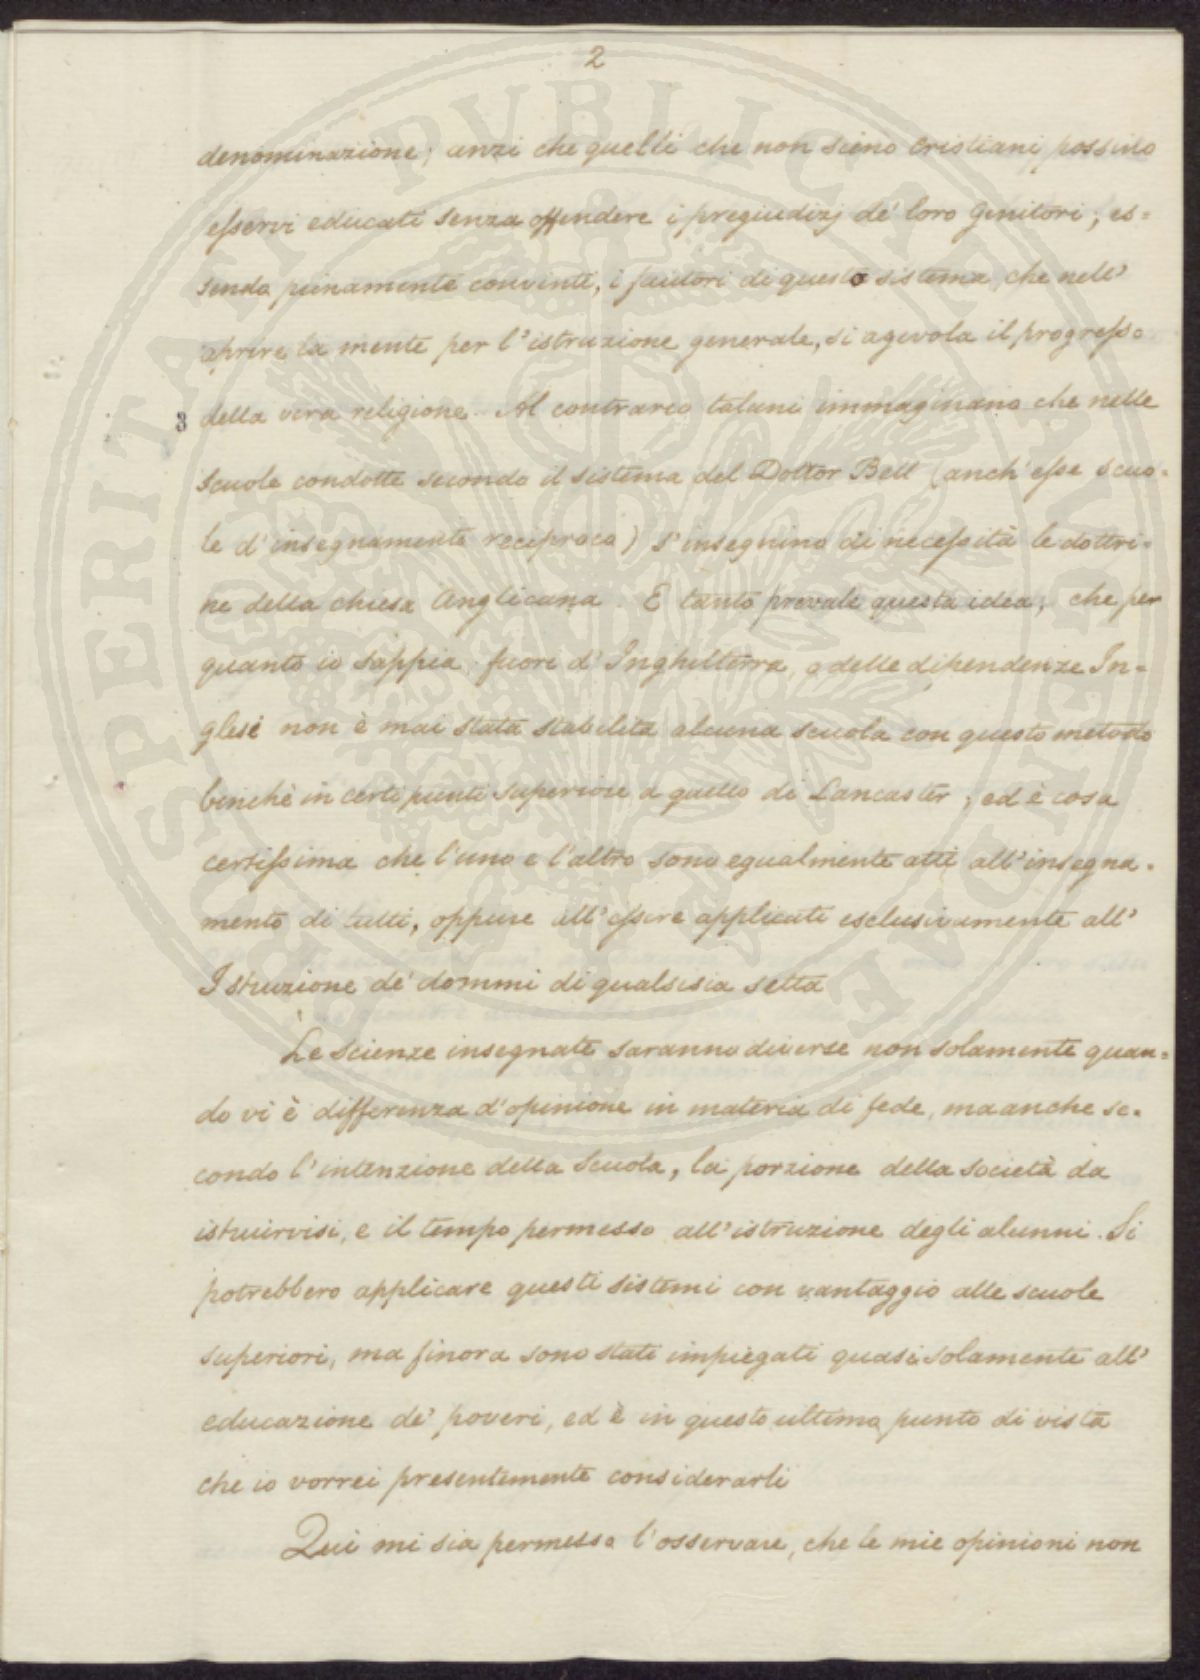 2
denominazione; anzi che quelli che non sieno Cristiani possino
esservi educati senza offendere i pregiudizj de' loro Genitori, es=
sendo pienamente convinti, i fautori di questo sistema, che nell'
aprire la mente per l'istruzione generale, si agevola il progresso
3 della vera religione. Al contrario taluni immaginano che nelle
scuole condotte secondo il sistema del Dottor Bell (anch'esse scuo=
le d'insegnamento reciproco) s'insegnino di necessità le dottri=
ne della chiesa Anglicana. E tanto prevale questa idea, che per
quanto io sappia, fuori d'Inghilterra, o delle dipendenze In=
glesi non è mai stata stabilita alcuna scuola con questo metodo
benchè in certi punti superiore a quello di Lancaster; ed è cosa
certissima che l'uno e l'altro sono egualmente atti all'insegna=
mento di tutti, oppure all'essere applicati esclusivamente all'
Istruzione de' dommi di qualsisia setta
Le scienze insegnate saranno diverse non solamente quan=
do vi è differenza d'opinione in materia di fede, ma anche se=
condo l'intenzione della Scuola, la porzione della società da
istruirvisi, e il tempo permesso all'istruzione degli alunni. Si
potrebbero applicare questi sistemi con vantaggio alle scuole
superiori, ma finora sono stati impiegati quasi solamente all'
educazione de' poveri, ed è in questo ultimo punto di vista
che io vorrei presentemente considerarli
Qui mi sia permesso l'osservare, che le mie opinioni non
PROSPERITATI PUBLICAE AUGENDAE